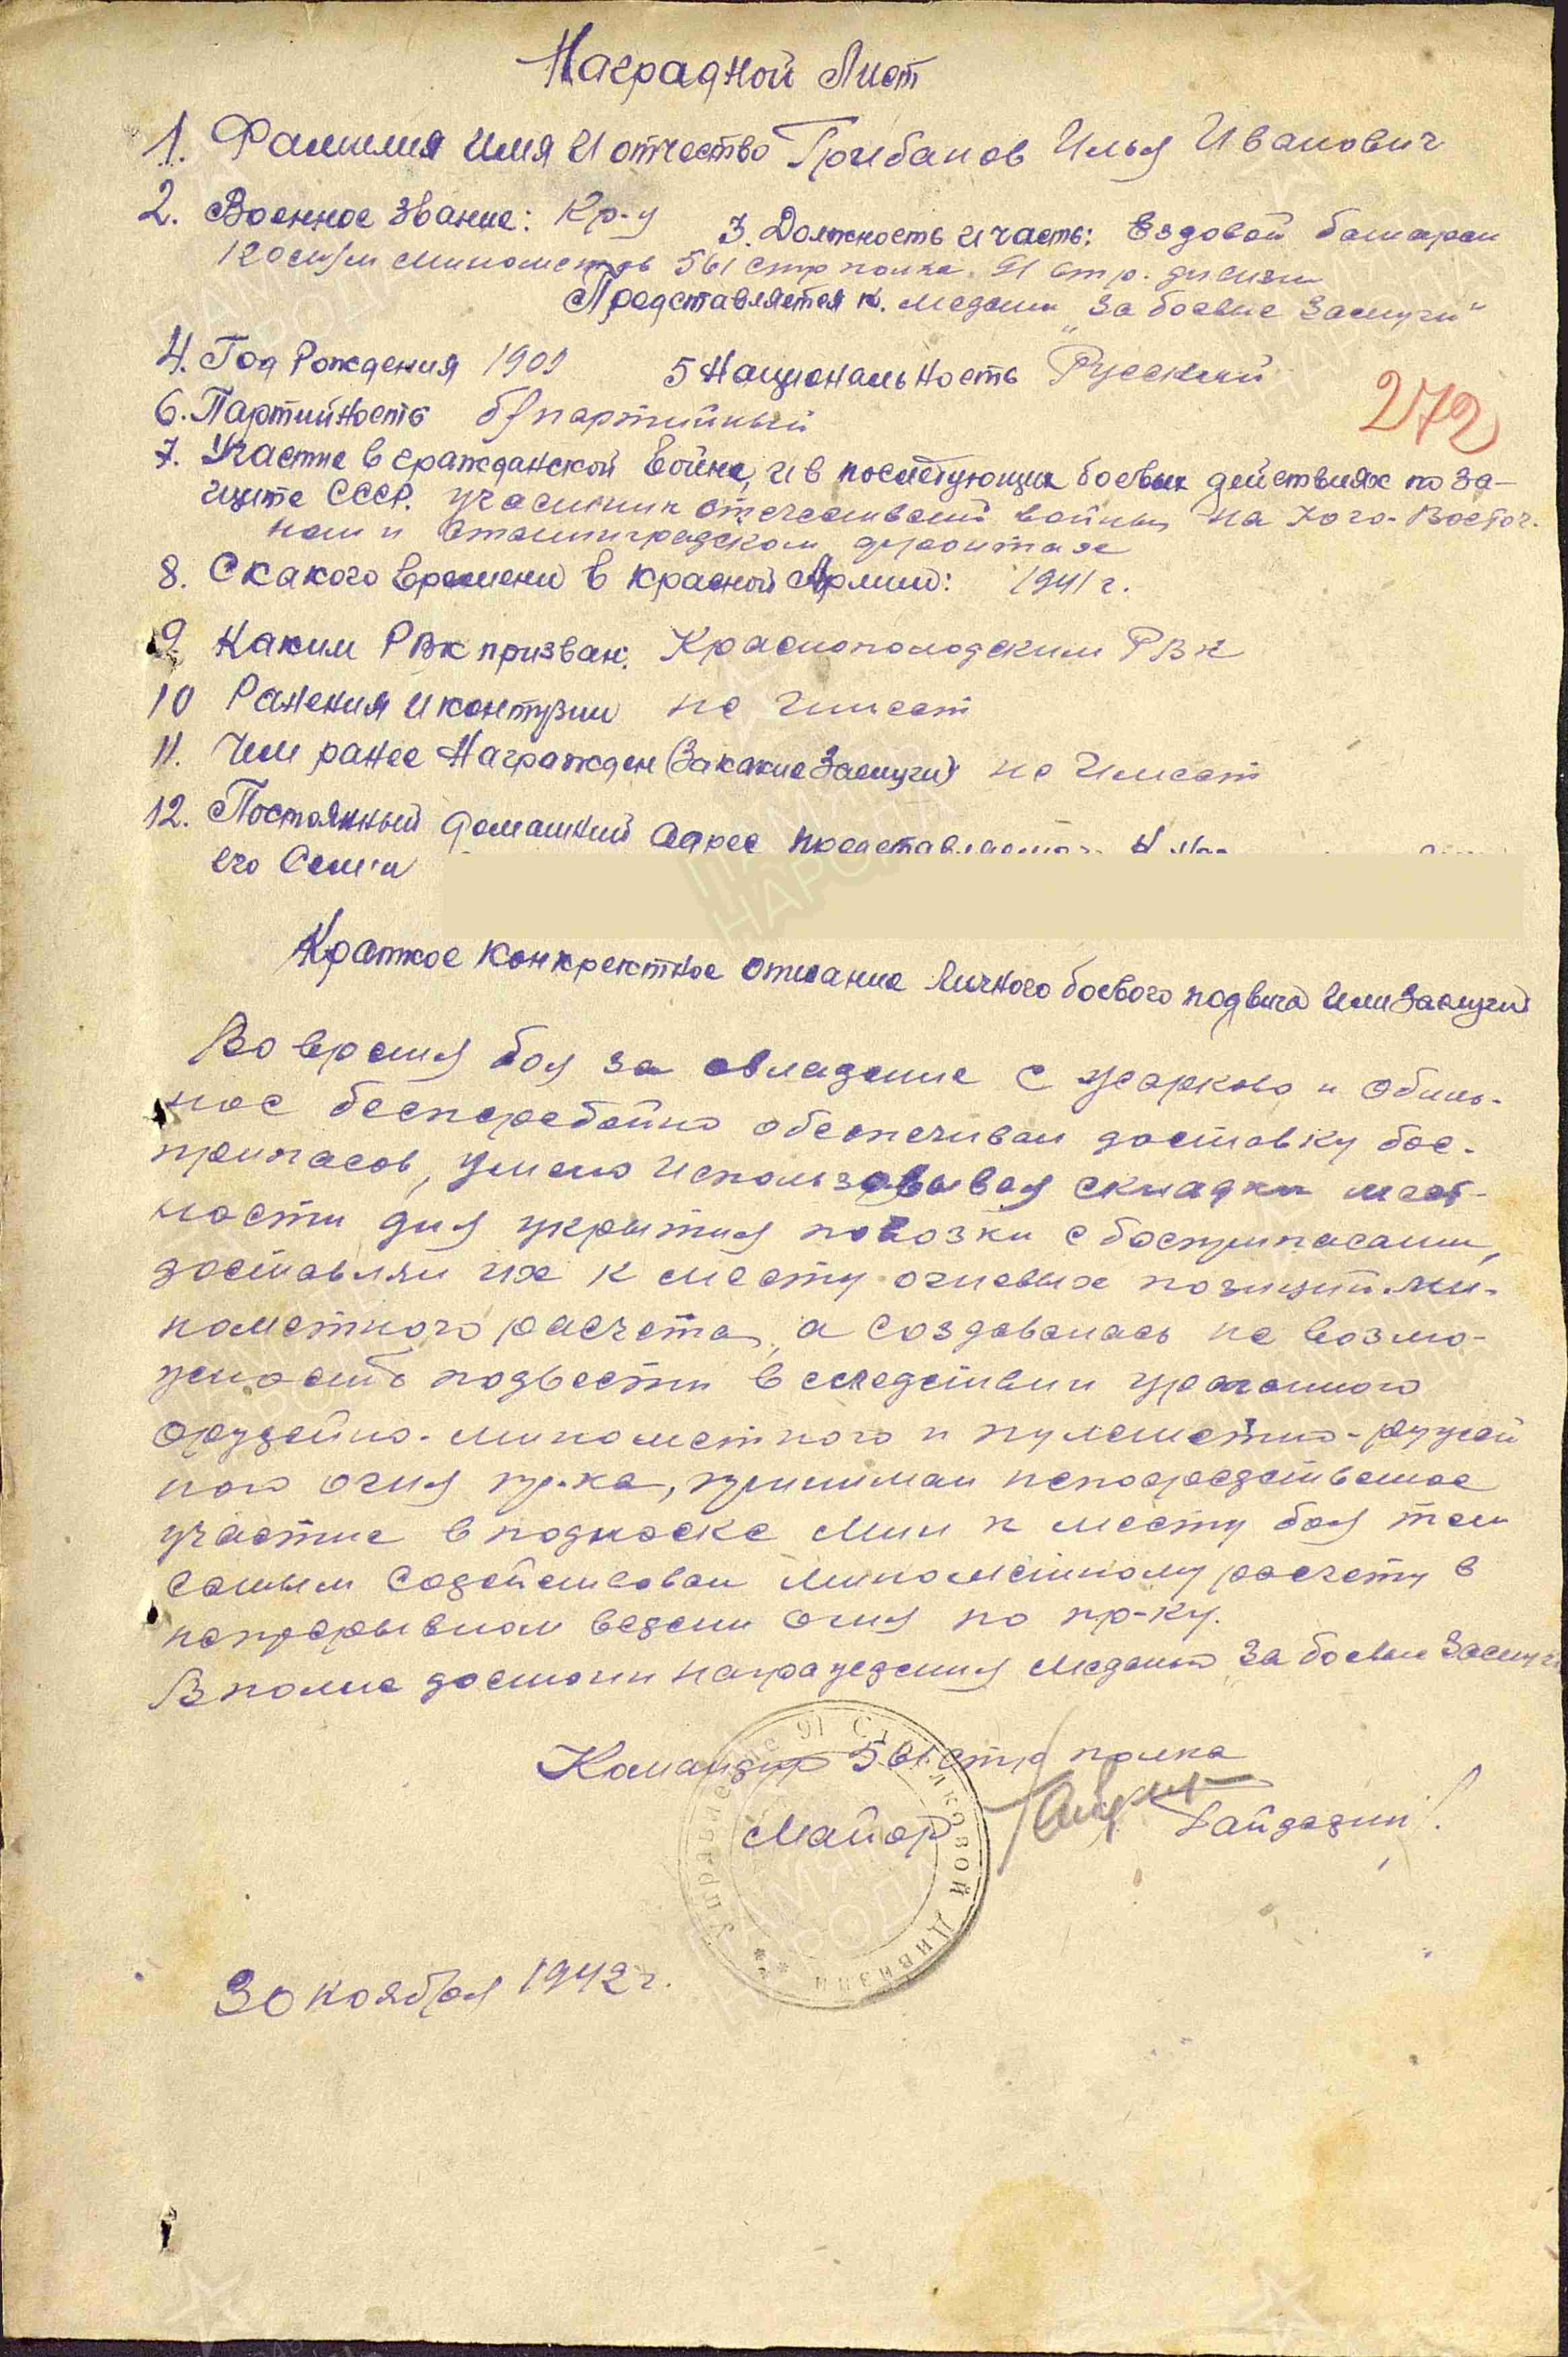 Наградной Лист
1. Фамилия Имя И отчество Грибанов Илья Иванович
2. Военное звание: Кр-ц 3. Должность и часть: Ездовой батареи
120 см/м минометов 561 стр полка 91 стр. дивизии
Представляется к. медали "За боевые заслуги"
4. Год Рождения 1901 5 Национальность Русский
272
6. Партийность б/партийный
7. Участие в гражданской войне, и в последующих боевых действиях по за-
щите СССР. участник отечественной войны на Юго-Восточ.
ном и Сталинградском фронтах
8. С какого времени в красной Армии: 1941 г.
9 Каким РВК призван. Краснополодским РВК
10 Ранения и контузии не имеет
11. Чем ранее Награжден (За какие Заслуги) не имеет
12. Постоянный домашний адрес представляемого к
его Семьи
Краткое конкретное описание личного боевого подвига или заслуги
Во время боя за овладение с Жарково и Обиль-
ное бесперебойно обеспечивал доставку бое-
припасов, умело использовывая складки мест-
ности для укрытия повозки с боеприпасами,
доставлял их к месту огневых позиций ми-
нометного расчета, а создавалась не возмо-
жность подвести в следствии ураганного
орудейно-минометного и пулеметно-ружей
ного огня пр-ка, принимал непосредственное
участие в подноске мин к месту боя тем
самым содействовал минометному расчету в
непрерывном ведении огня по пр-ку.
Вполне достоин награждения медалью "За боевые Заслуги
Командир 561 стр полка
Майор Гайдадин!
Управление 91 Стрелковой Дивизии
30 ноября 1942 г.